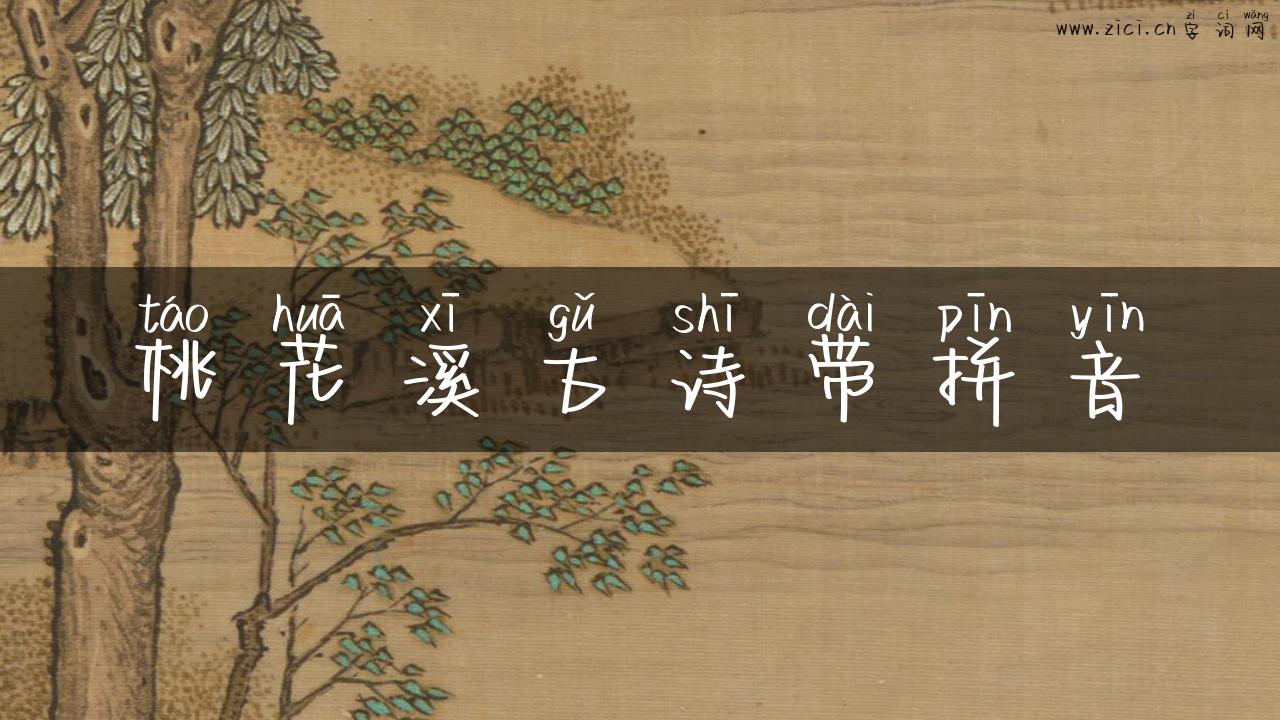 zì cí wǎng
www.zici.cn 字词网
táo huā xī gǔ shī dài pīn yīn
桃花溪古诗带拼音